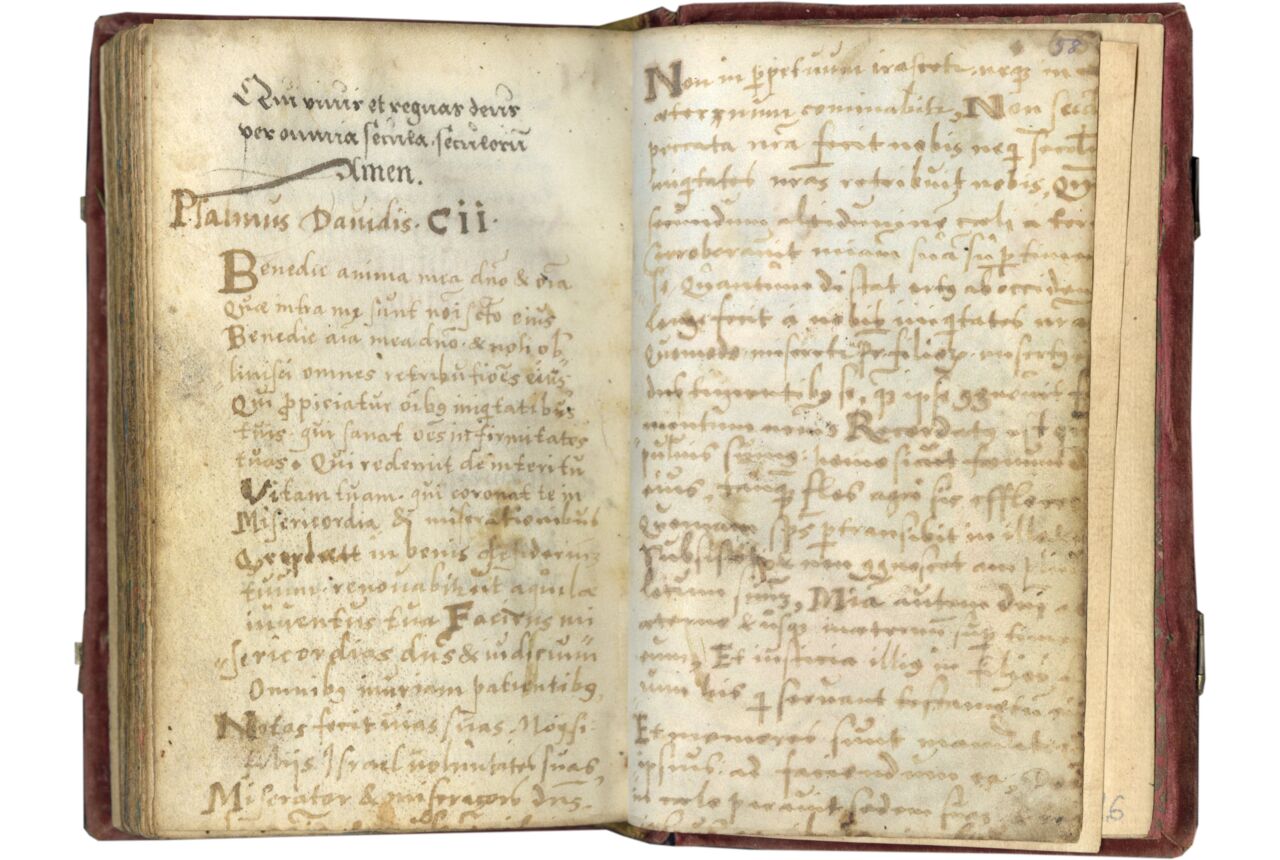 Qui vivis et regnas deus
per omnia secula. seculorũ
Amen.
Psalmus Davidis. Cii.
Benedic anima mea dño & oĩa
Quæ intra me sunt noĩ scto eius
Benedic aĩa mea dño. & noli ob
livisci omnes retributiões eius.
Qui ꝓpiciatur oĩbꝰ iniqtatibus
tuis. qui sanat oẽs infirmitates
tuas. Qui redemit de interitu
Vitam tuam. qui coronat te in
Misericordia & miserationibus
in bonis desiderium
tuum. renovabitur ut aquila
iuventus tua Faciens mi
sericordias dñs & iudicium
Omnibꝰ iniuriam patientibꝰ
Notas fecit vias suas. Moysi.
filijs Israel voluntates suas
Miserator & misericors dñs.
58
Non in ꝑpetuum irascetr. neqꝫ in
æternum cominabitr. Non secũ
peccata nrã fecit nobis neqꝫ
iniqtates nrãs retribuit nobis. Qm
secundum altidudine celi a terr
corroboravit miam suã suꝑ timen
se Quantum distat ortꝰ ab occiden
Longe fecit a nobis iniqtates nrã
Quomodo miseretr pr filioꝝ. misertꝰ
dñs timentibꝰ se, qꝫ ipse ꝯgnovit f
mentum nrm Recordatꝰ est
pulvis sumꝰ. homo sicut fœnum
eius. tanqꝫ flos agri sic efflore
Quoniam sps ꝑtransibit in illo
Subsistet & non ꝯgnoscet am pliꝰ
Locum suũ, Mia autem dni a
æterno & usqꝫ in æternũ suꝑ time
eum, Et iusticia illiꝰ in filios
um his q servant testamẽtũ ei
Et memores sunt mandator
ipsius. ad faciendum ea. Dñs
in celo paravit sedem suã
16